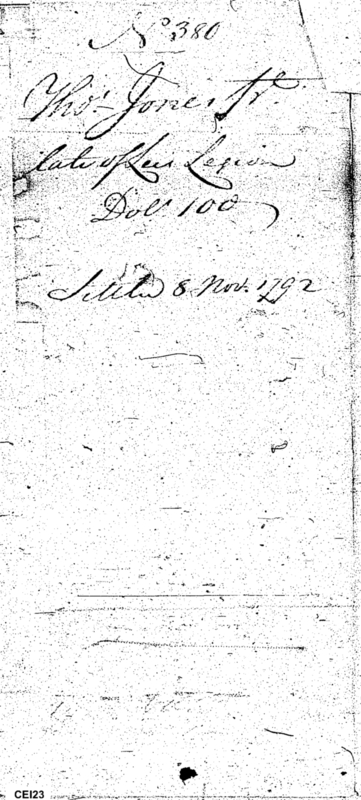 No. 380
Thos. Jones Jr.
late of Lees Legion
Dols 100
Settled 8 Nov. 1792
CEI23